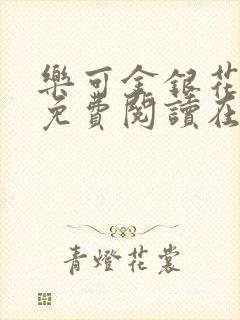 樂可金銀花
免費閱讀在
青燈花裳